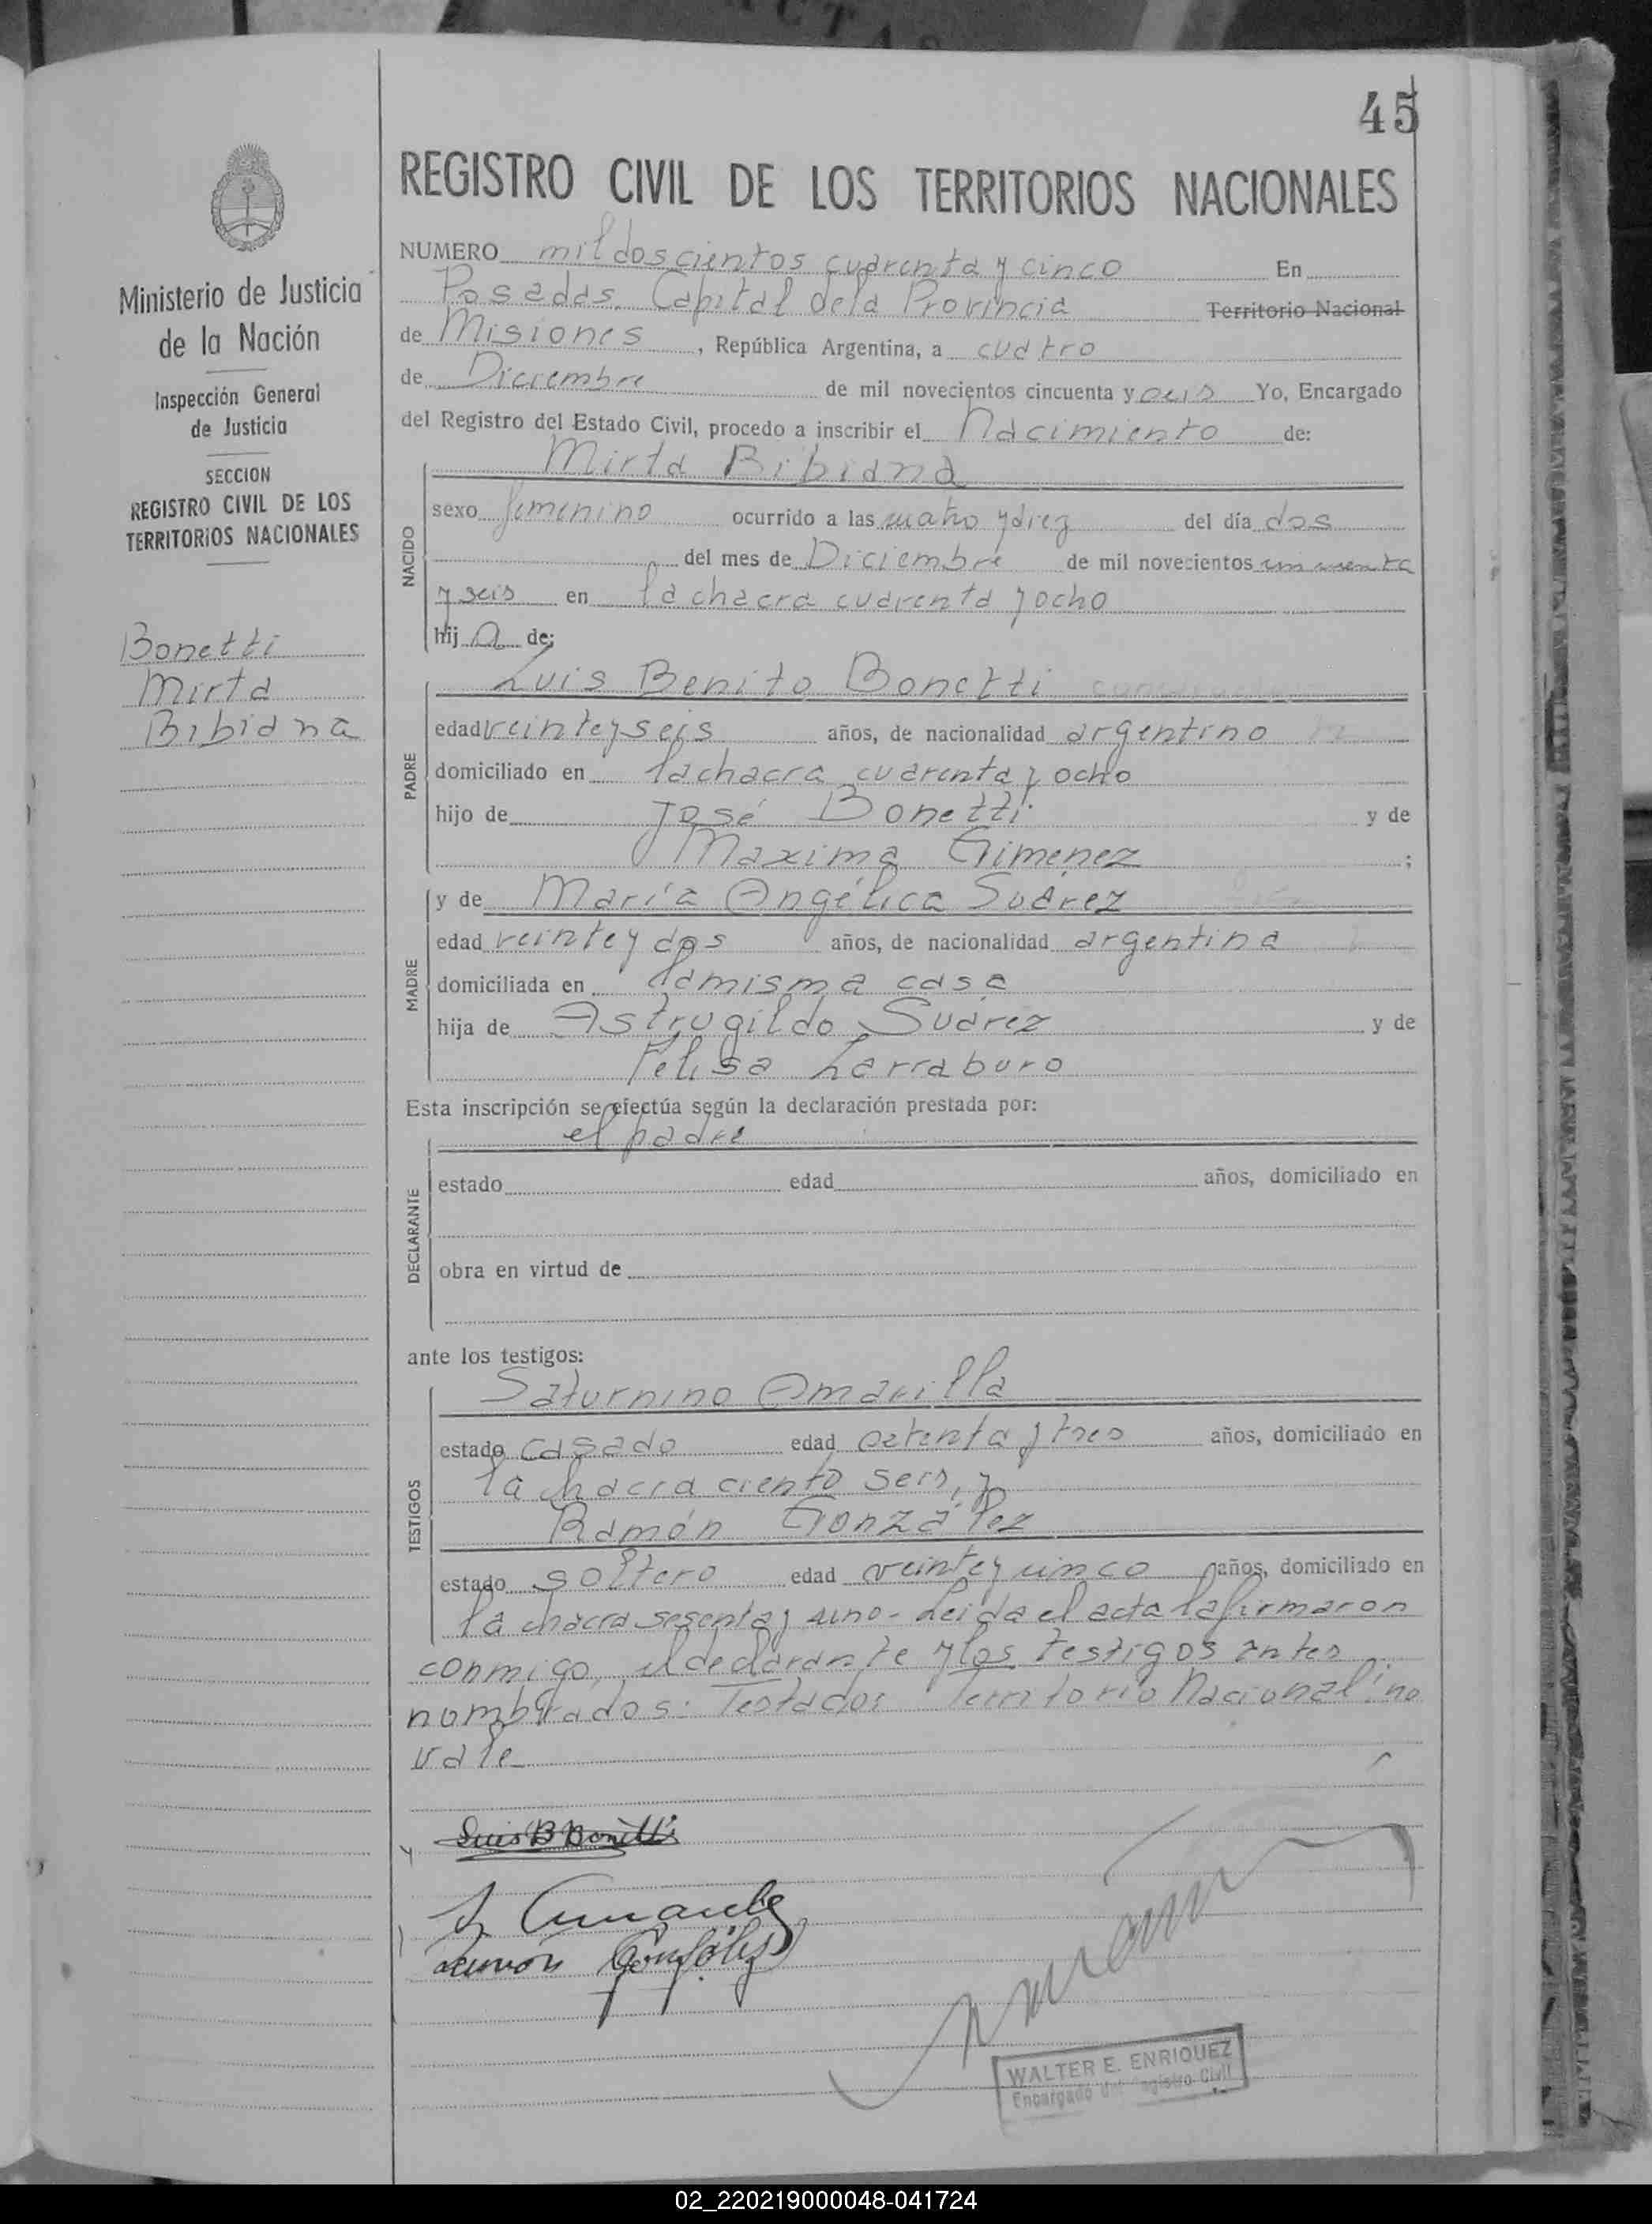 45
REGISTRO CIVIL DE LOS TERRITORIOS NACIONALES
Ministerio de Justicia
de la Nación
Inspección General
de Justicia
SECCION
REGISTRO CIVIL DE LOS
TERRITORIOS NACIONALES
Bonetti
Mirta
Bibiana
NUMERO mil doscientos cuarenta y cinco En
Posadas, Capital de la Provincia Territorio Nacional
de Misiones, República Argentina, a cuatro
de Diciembre de mil novecientos cincuenta y seis Yo, Encargado
del Registro del Estado Civil, procedo a inscribir el Nacimiento de:
NACIDO
Mirta Bibiana
sexo femenino ocurrido a las cuatro y diez del día dos
del mes de Diciembre de mil novecientos cincuenta
y seis en la chacra cuarenta y ocho
hija de:
PADRE
Luis Benito Bonetti
edad veinte y seis años, de nacionalidad argentino
domiciliado en la chacra cuarenta y ocho
hijo de José Bonetti y de
Maxima Gimenez ;
MADRE
y de María Angélica Suárez
edad veinte y dos años, de nacionalidad argentina
domiciliada en la misma casa
hija de Astrugildo Suárez y de
Felisa Larraburo
Esta inscripción se efectúa según la declaración prestada por:
DECLARANTE
el padre
estado edad años, domiciliado en
obra en virtud de
ante los testigos:
TESTIGOS
Saturnino Amarilla
estado casado edad años, domiciliado en
la chacra ciento seis, y
Ramón González
estado soltero edad veinte y cinco años, domiciliado en
la chacra sesenta y uno - Leida el acta la firmaron
conmigo, el declarante y los testigos antes
nombrados: Testados: Territorio Nacional: no
vale
Luis B Bonetti
S. Amarilla
Ramón González
WALTER E. ENRIQUEZ
Encargado del Registro Civil
02_220219000048-041724